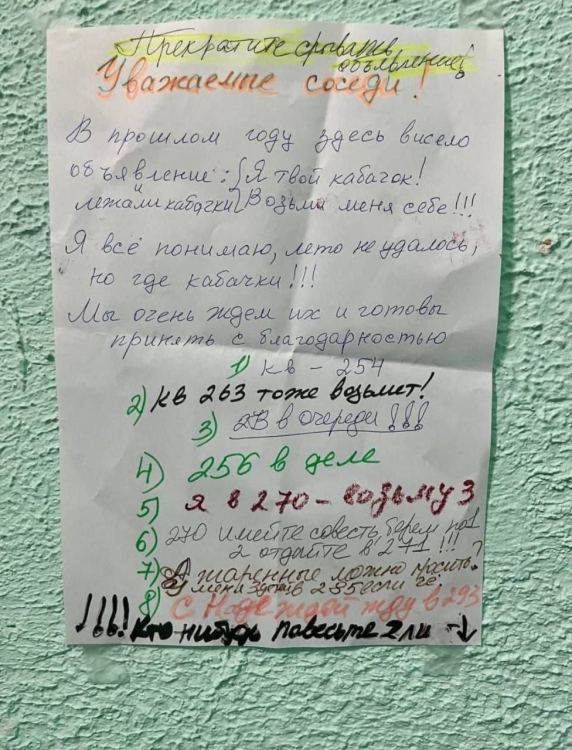 Прекратите срывать
объявление!
Уважаемые соседи!
В прошлом году здесь висело
объявление: { Я твой кабачок!
и
лежали кабачки { Возьми меня себе!!!
Я всё понимаю, лето не удалось,
но где кабачки!!!
Мы очень ждем их и готовы
принять с благодарностью
1) кв - 254
2) кв 263 тоже возьмет!
3) в очереди!!!
4) 256 в деле
5) Я в 270 - возьму 3
6) 270 имейте совесть, берем по 1
2 отдайте в 271!!!
7) А жаренные можно ?
У меня в 235 если че.
8) С Надеждой жду в 293
!!!! Кто нибудь повесьте 2 ли ↓